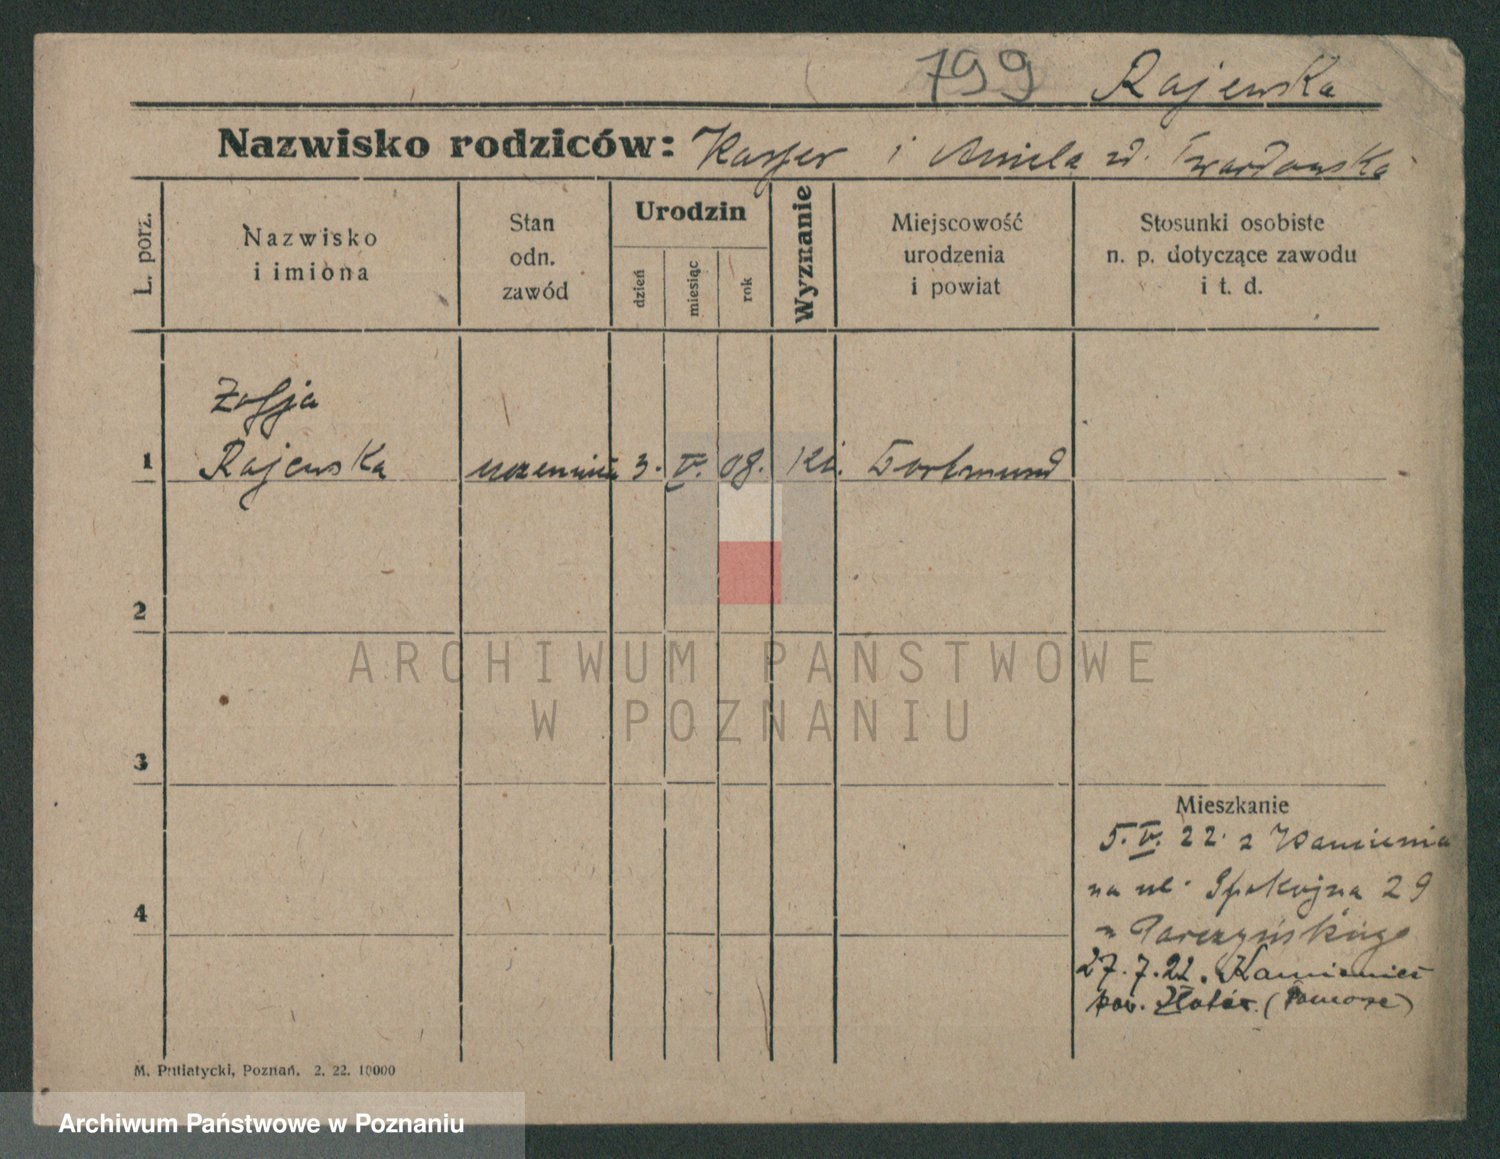 799 Rajewska
Nazwisko rodziców: Kasper i Aniela zd. Twardowska
L. porz.
Nazwisko
i imiona
Stan
odn.
zawód
Urodzin
dzień
miesiąc
rok
Wyznanie
Miejscowość
urodzenia
i powiat
Stosunki osobiste
n. p. dotyczące zawodu
i t. d.
Zofja
1 Rajewska uczennica 3. V. 08. kt. Dortmund
2
3
4
Mieszkanie
5. V. 22. z Kamienia
na ul. Spokojna 29
Parczyńskiego
27.7.22. Kamieniec
pow. (Pomorze)
M. Putiatycki, Poznań. 2. 22. 10000
ARCHIWUM PAŃSTWOWE
W POZNANIU
Archiwum Państwowe w Poznaniu